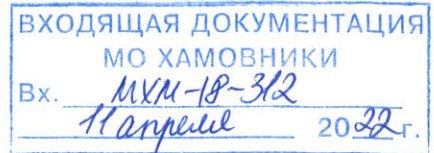 ВХОДЯЩАЯ ДОКУМЕНТАЦИЯ
МО ХАМОВНИКИ
Вх. МХМ-18-312
11 апреля 2022 г.